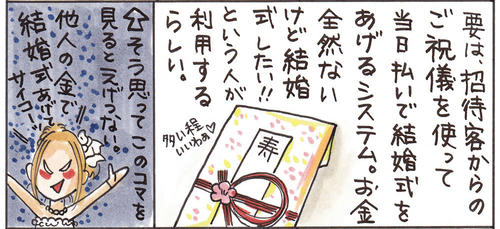 要は、招待客からの
ご祝儀を使って
当日払いで結婚式を
あげるシステム。お金
全然ない
けど結婚
式したい!!
という人が
利用する
らしい。
多い程
いいわぁ♡
寿
⇧そう思ってこのコマを
見るとえげつない。
他人の金で
結婚式あげて
サイコーッ